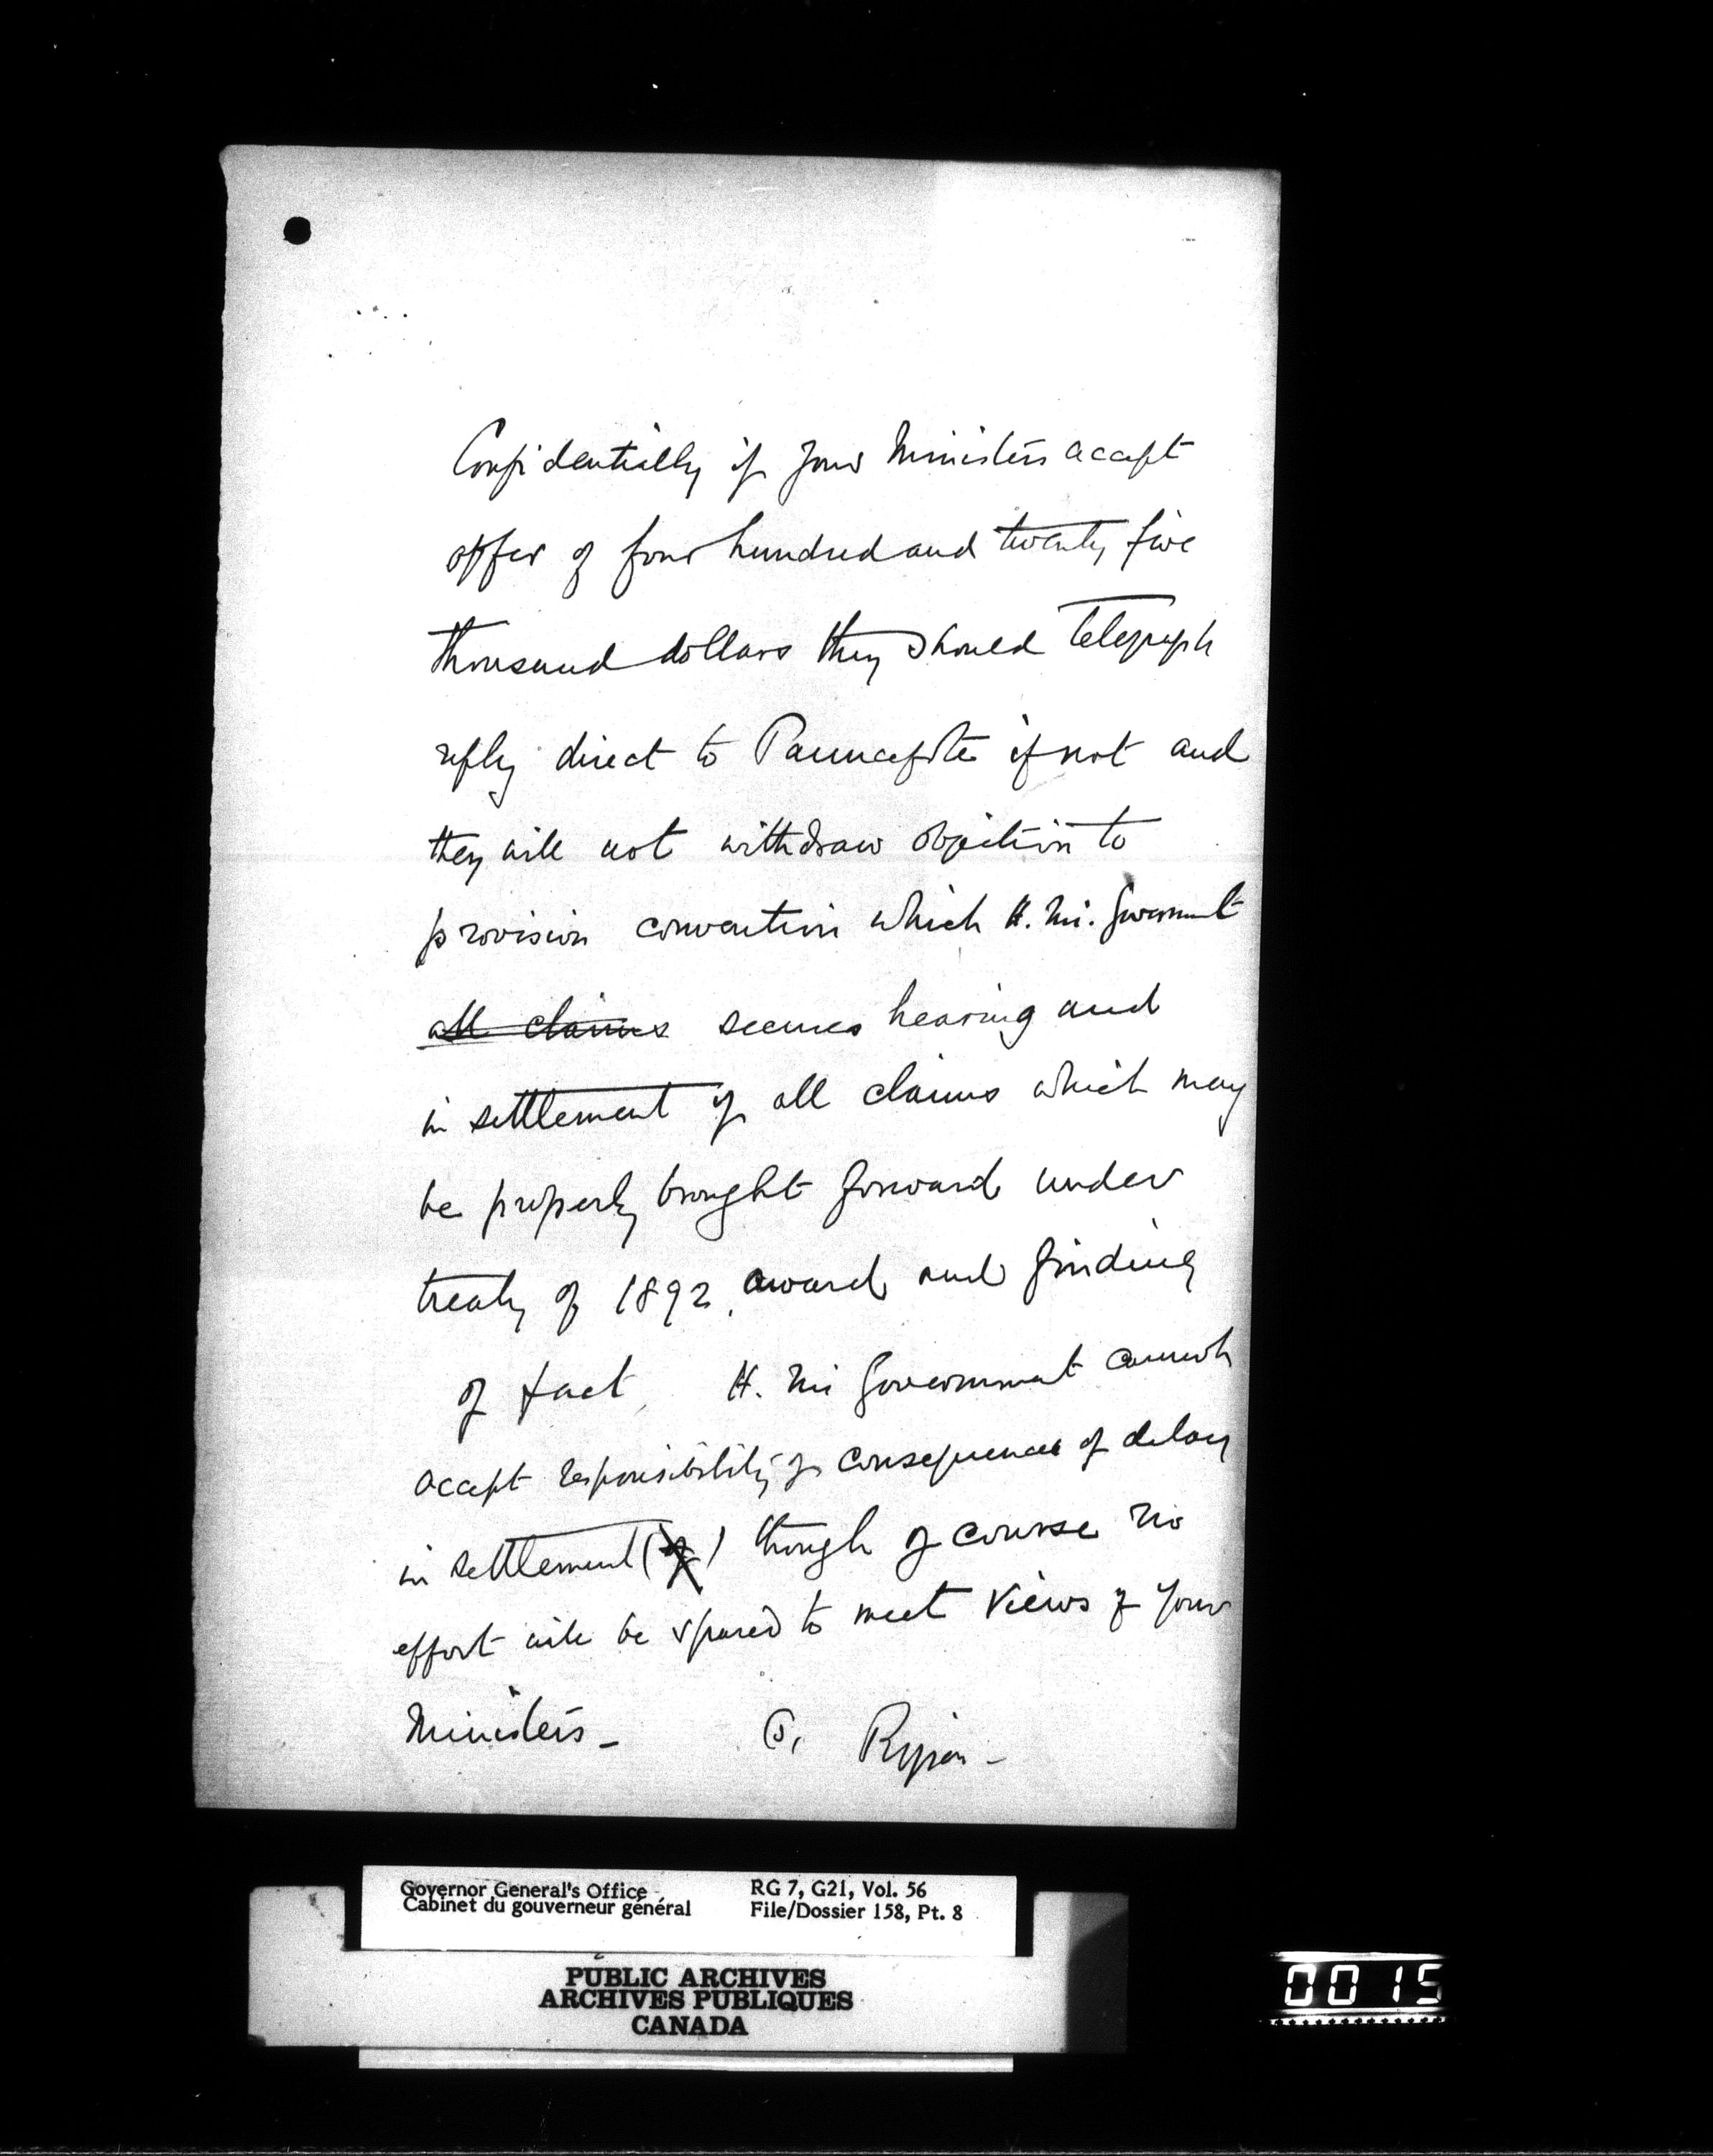 Confidentially if your Ministers accept
offer of four hundred and twenty five
thousand dollars they should telegraph
reply direct to Pauncefote if not and
they will not withdraw objection to
provision convention which H. M. Government
all claims secures hearing and
in settlement of all claims which may
be properly brought forward under
treaty of 1892, award and finding
of fact, H. M. Government cannot
accept responsibility of consequences of delay
in settlement (of) though of course no
effort will be spared to meet views of your
Ministers - (S, Ripon -
Governor General's Office RG 7, G21, Vol. 56
Cabinet du gouverneur général File/Dossier 158, Pt. 8
PUBLIC ARCHIVES
ARCHIVES PUBLIQUES
CANADA
0015